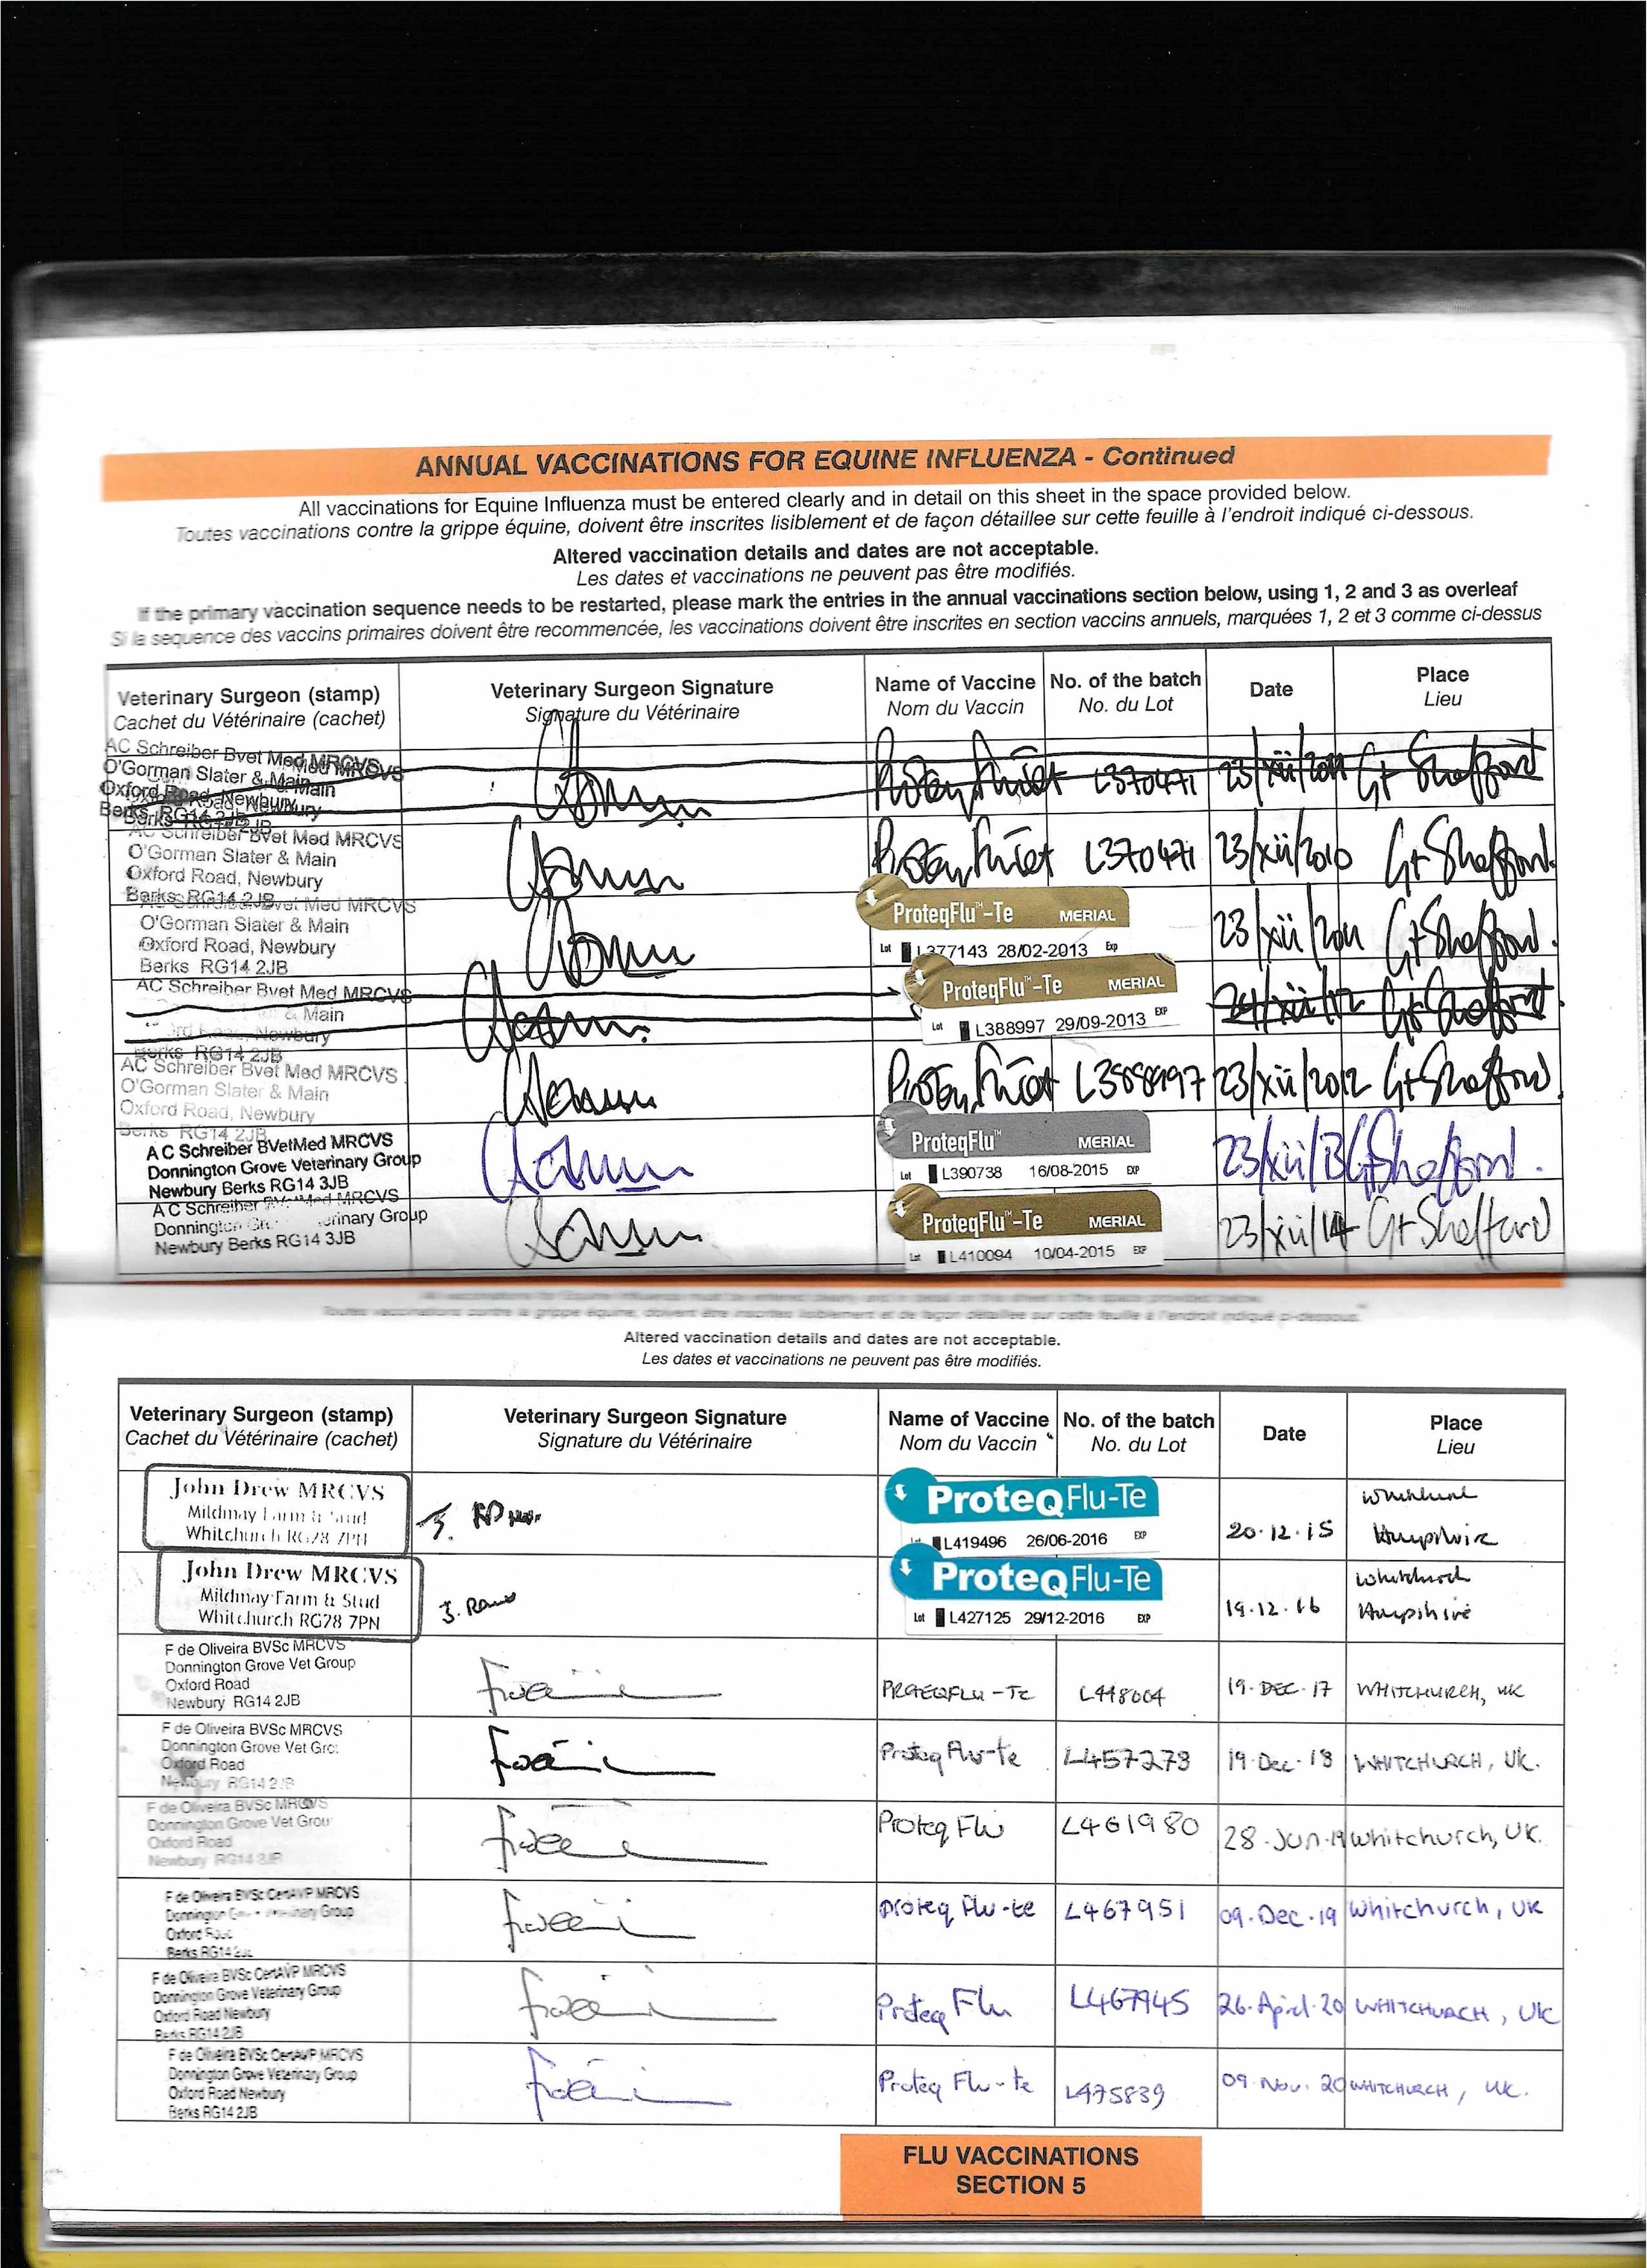 ANNUAL VACCINATIONS FOR EQUINE INFLUENZA - Continued
All vaccinations for Equine Influenza must be entered clearly and in detail on this sheet in the space provided below.
Toutes vaccinations contre la grippe équine, doivent être inscrites lisiblement et de façon détaillee sur cette feuille à l'endroit indiqué ci-dessous.
Altered vaccination details and dates are not acceptable.
Les dates et vaccinations ne peuvent pas être modifiés.
If the primary vaccination sequence needs to be restarted, please mark the entries in the annual vaccinations section below, using 1, 2 and 3 as overleaf
Si la sequence des vaccins primaires doivent être recommencée, les vaccinations doivent être inscrites en section vaccins annuels, marquées 1, 2 et 3 comme ci-dessus
Veterinary Surgeon (stamp) Veterinary Surgeon Signature Name of Vaccine No. of the batch Date Place
Cachet du Vétérinaire (cachet) Signature du Vétérinaire Nom du Vaccin No. du Lot Lieu
AC Schreiber Bvet Med MRCVS
O'Gorman Slater & Main
Oxford Road, Newbury
Berks RG14 2JB
L370471 23/xii/2011 Gt Shefford
AC Schreiber Bvet Med MRCVS
O'Gorman Slater & Main
Oxford Road, Newbury
Berks RG14 2JB
L370471 23/xii/2010 Gt Shefford.
Bvet Med MRCVS
O'Gorman Slater & Main
Oxford Road, Newbury
Berks RG14 2JB
ProteqFlu™-Te MERIAL
Lot L377143 28/02-2013 Exp
23/xii/2011 Gt Shefford.
AC Schreiber Bvet Med MRCVS
& Main
Newbury
Berks RG14 2JB
ProteqFlu™-Te MERIAL
Lot L388997 29/09-2013 EXP
Gt Shefford.
AC Schreiber Bvet Med MRCVS
O'Gorman Slater & Main
Oxford Road, Newbury
Berks RG14 2JB
L388997 23/xii/2012 Gt Shefford.
A C Schreiber BVetMed MRCVS
Donnington Grove Veterinary Group
Newbury Berks RG14 3JB
ProteqFlu™ MERIAL
Lot L390738 16/08-2015 EXP
23/xii/13 Gt Shefford.
A C Schreiber MRCVS
Donnington Group
Newbury Berks RG14 3JB
ProteqFlu™-Te MERIAL
Lot L410094 10/04-2015 EXP
23/xii/14 Gt Shefford
Toutes vaccinations contre la grippe équine, doivent être inscrites lisiblement et de façon détaillee sur cette feuille à l'endroit indiqué ci-dessous.
Altered vaccination details and dates are not acceptable.
Les dates et vaccinations ne peuvent pas être modifiés.
Veterinary Surgeon (stamp) Veterinary Surgeon Signature Name of Vaccine No. of the batch Date Place
Cachet du Vétérinaire (cachet) Signature du Vétérinaire Nom du Vaccin No. du Lot Lieu
John Drew MRCVS
Mildmay Farm & Stud
Whitchurch RG28 7PN
ProteqFlu-Te
L419496 26/06-2016 EXP
20.12.15
Whitchurch
Hampshire
John Drew MRCVS
Mildmay Farm & Stud
Whitchurch RG28 7PN
ProteqFlu-Te
Lot L427125 29/12-2016 EXP
19.12.16
Whitchurch
Hampshire
F de Oliveira BVSc MRCVS
Donnington Grove Vet Group
Oxford Road
Newbury RG14 2JB
PROTEQFLU-Te L448004 19. DEC. 17 WHITCHURCH, UK
F de Oliveira BVSc MRCVS
Donnington Grove Vet Gro
Oxford Road
Newbury RG14 2JB
Proteq Flu-te L457273 19. Dec. 18 WHITCHURCH, UK.
F de Oliveira BVSc MRCVS
Donnington Grove Vet Grou
Oxford Road
Newbury RG14 2JB
Proteq Flu L461980 28. Jun. 19 Whitchurch, UK.
F de Oliveira BVSc CertAVP MRCVS
Donnington Group
Oxford
Berks RG14
Proteq Flu-te L467951 09. Dec. 19 Whitchurch, UK
F de Oliveira BVSc CertAVP MRCVS
Donnington Grove Veterinary Group
Oxford Road Newbury
Berks RG14 2JB
Proteq Flu L467945 26. April. 20 WHITCHURCH, UK
F de Oliveira BVSc CertAVP MRCVS
Donnington Grove Veterinary Group
Oxford Road Newbury
Berks RG14 2JB
Proteq Flu-te L475839 09. Nov. 20 WHITCHURCH, UK.
FLU VACCINATIONS
SECTION 5